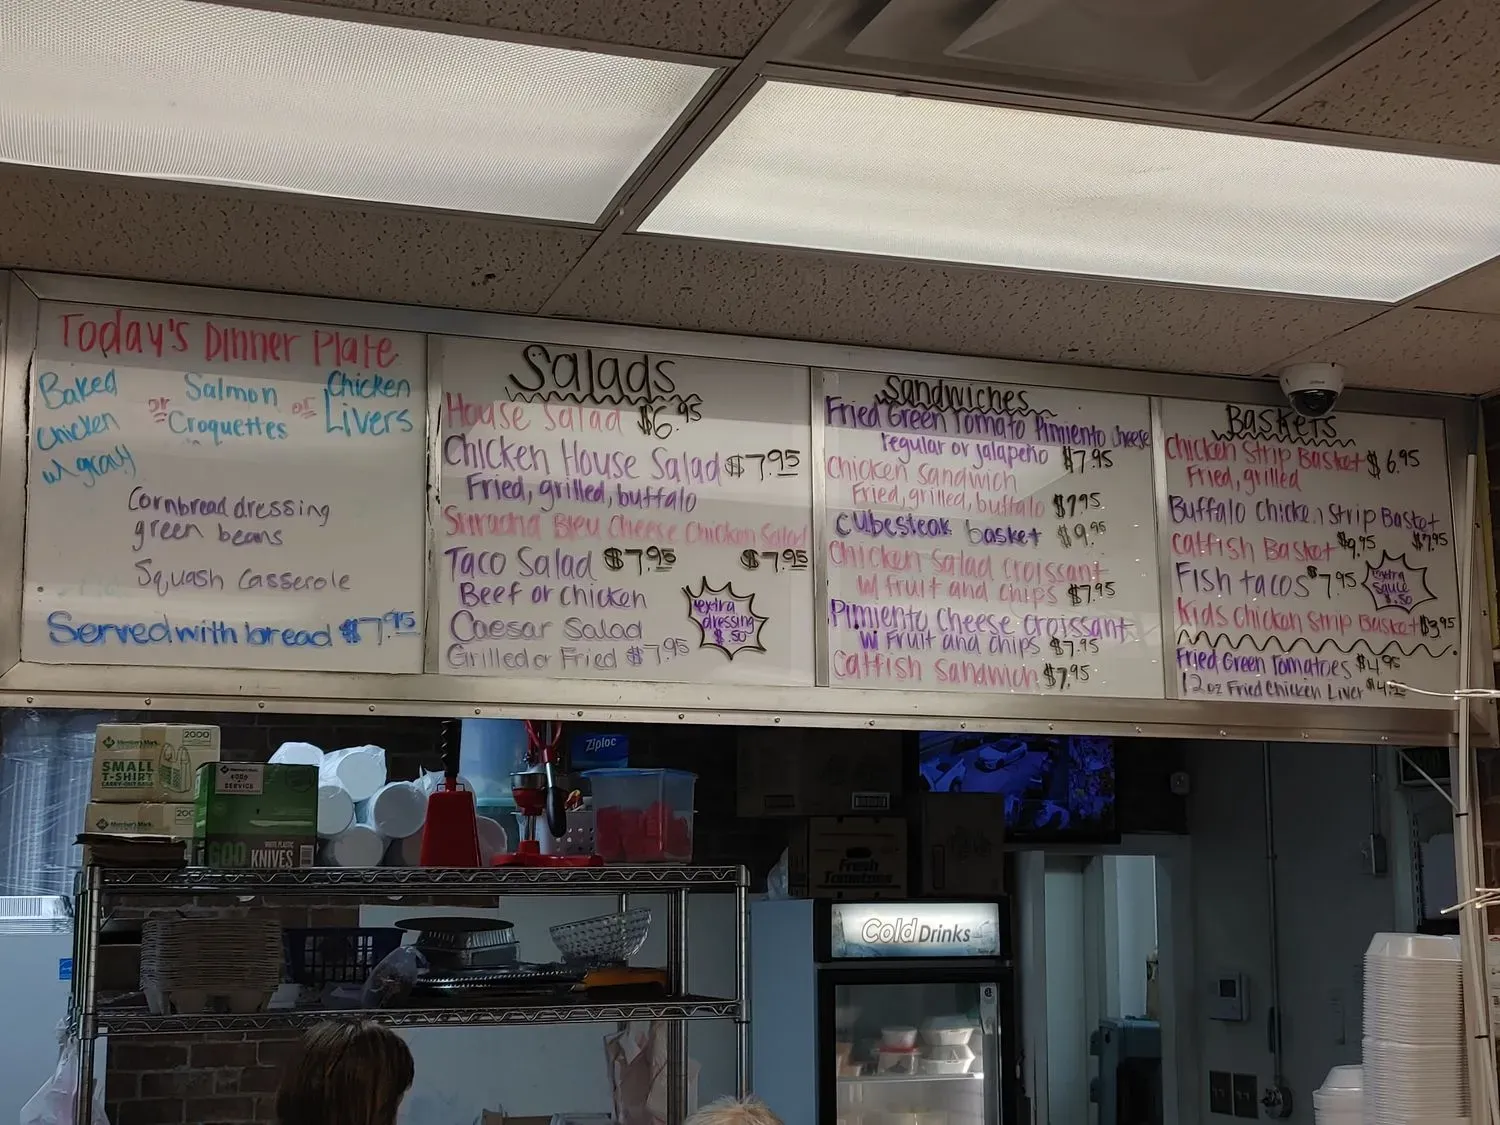 Today's Dinner Plate
Baked Chicken w/ gravy
or
Salmon Croquettes
or
Chicken Livers
Cornbread dressing
green beans
Squash Casserole
Served with bread $7.95
Salads
House Salad $6.95
Chicken House Salad $7.95
Fried, grilled, buffalo
Sriracha Bleu Cheese Chicken Salad
$7.95
Taco Salad $7.95
Beef or chicken
Caesar Salad
Grilled or Fried $7.95
extra
dressing
$.50
Sandwiches
Fried Green Tomato Pimiento Cheese
regular or jalapeño $7.95
Chicken Sandwich
Fried, grilled, buffalo $7.95
Cubesteak basket $9.95
Chicken Salad Croissant
w/ fruit and chips $7.95
Pimiento Cheese Croissant
w/ Fruit and chips $7.95
Catfish Sandwich $7.95
Baskets
Chicken Strip Basket $6.95
Fried, grilled
Buffalo Chicken Strip Basket
$7.95
Catfish Basket $9.95
Fish tacos $7.95
extra
sauce
$.50
Kids Chicken Strip Basket $3.95
Fried Green Tomatoes $4.95
12oz Fried Chicken Liver
Member's Mark
2000
SMALL
T-SHIRT
CARRY-OUT BAGS
Member's Mark
200
FOOD
SERVICE
600
WHITE PLASTIC
KNIVES
Ziploc
Fresh
Tomatoes
Cold Drinks